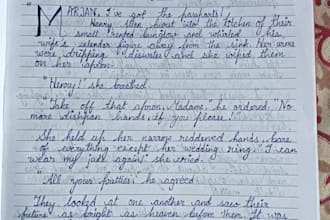 "MYRJAN, I've got the passports!"
Henry Allen burst into the kitchen of their
small rented bunglow and whirled his
wife's slender figure away from the sink. Her arms
were dripping dishwater and she wiped them
on her apron.
"Henry! she breathed.
"Take off that apron, Madame," he ordered. "No
more dishpan hands, if you please!"
She held up her narrow reddened hands, bare
of everything except her wedding ring. "I can
wear my jade again!" she cried.
"All your pretties," he agreed.
They looked at one another and saw their
future as bright as heaven before them. It was